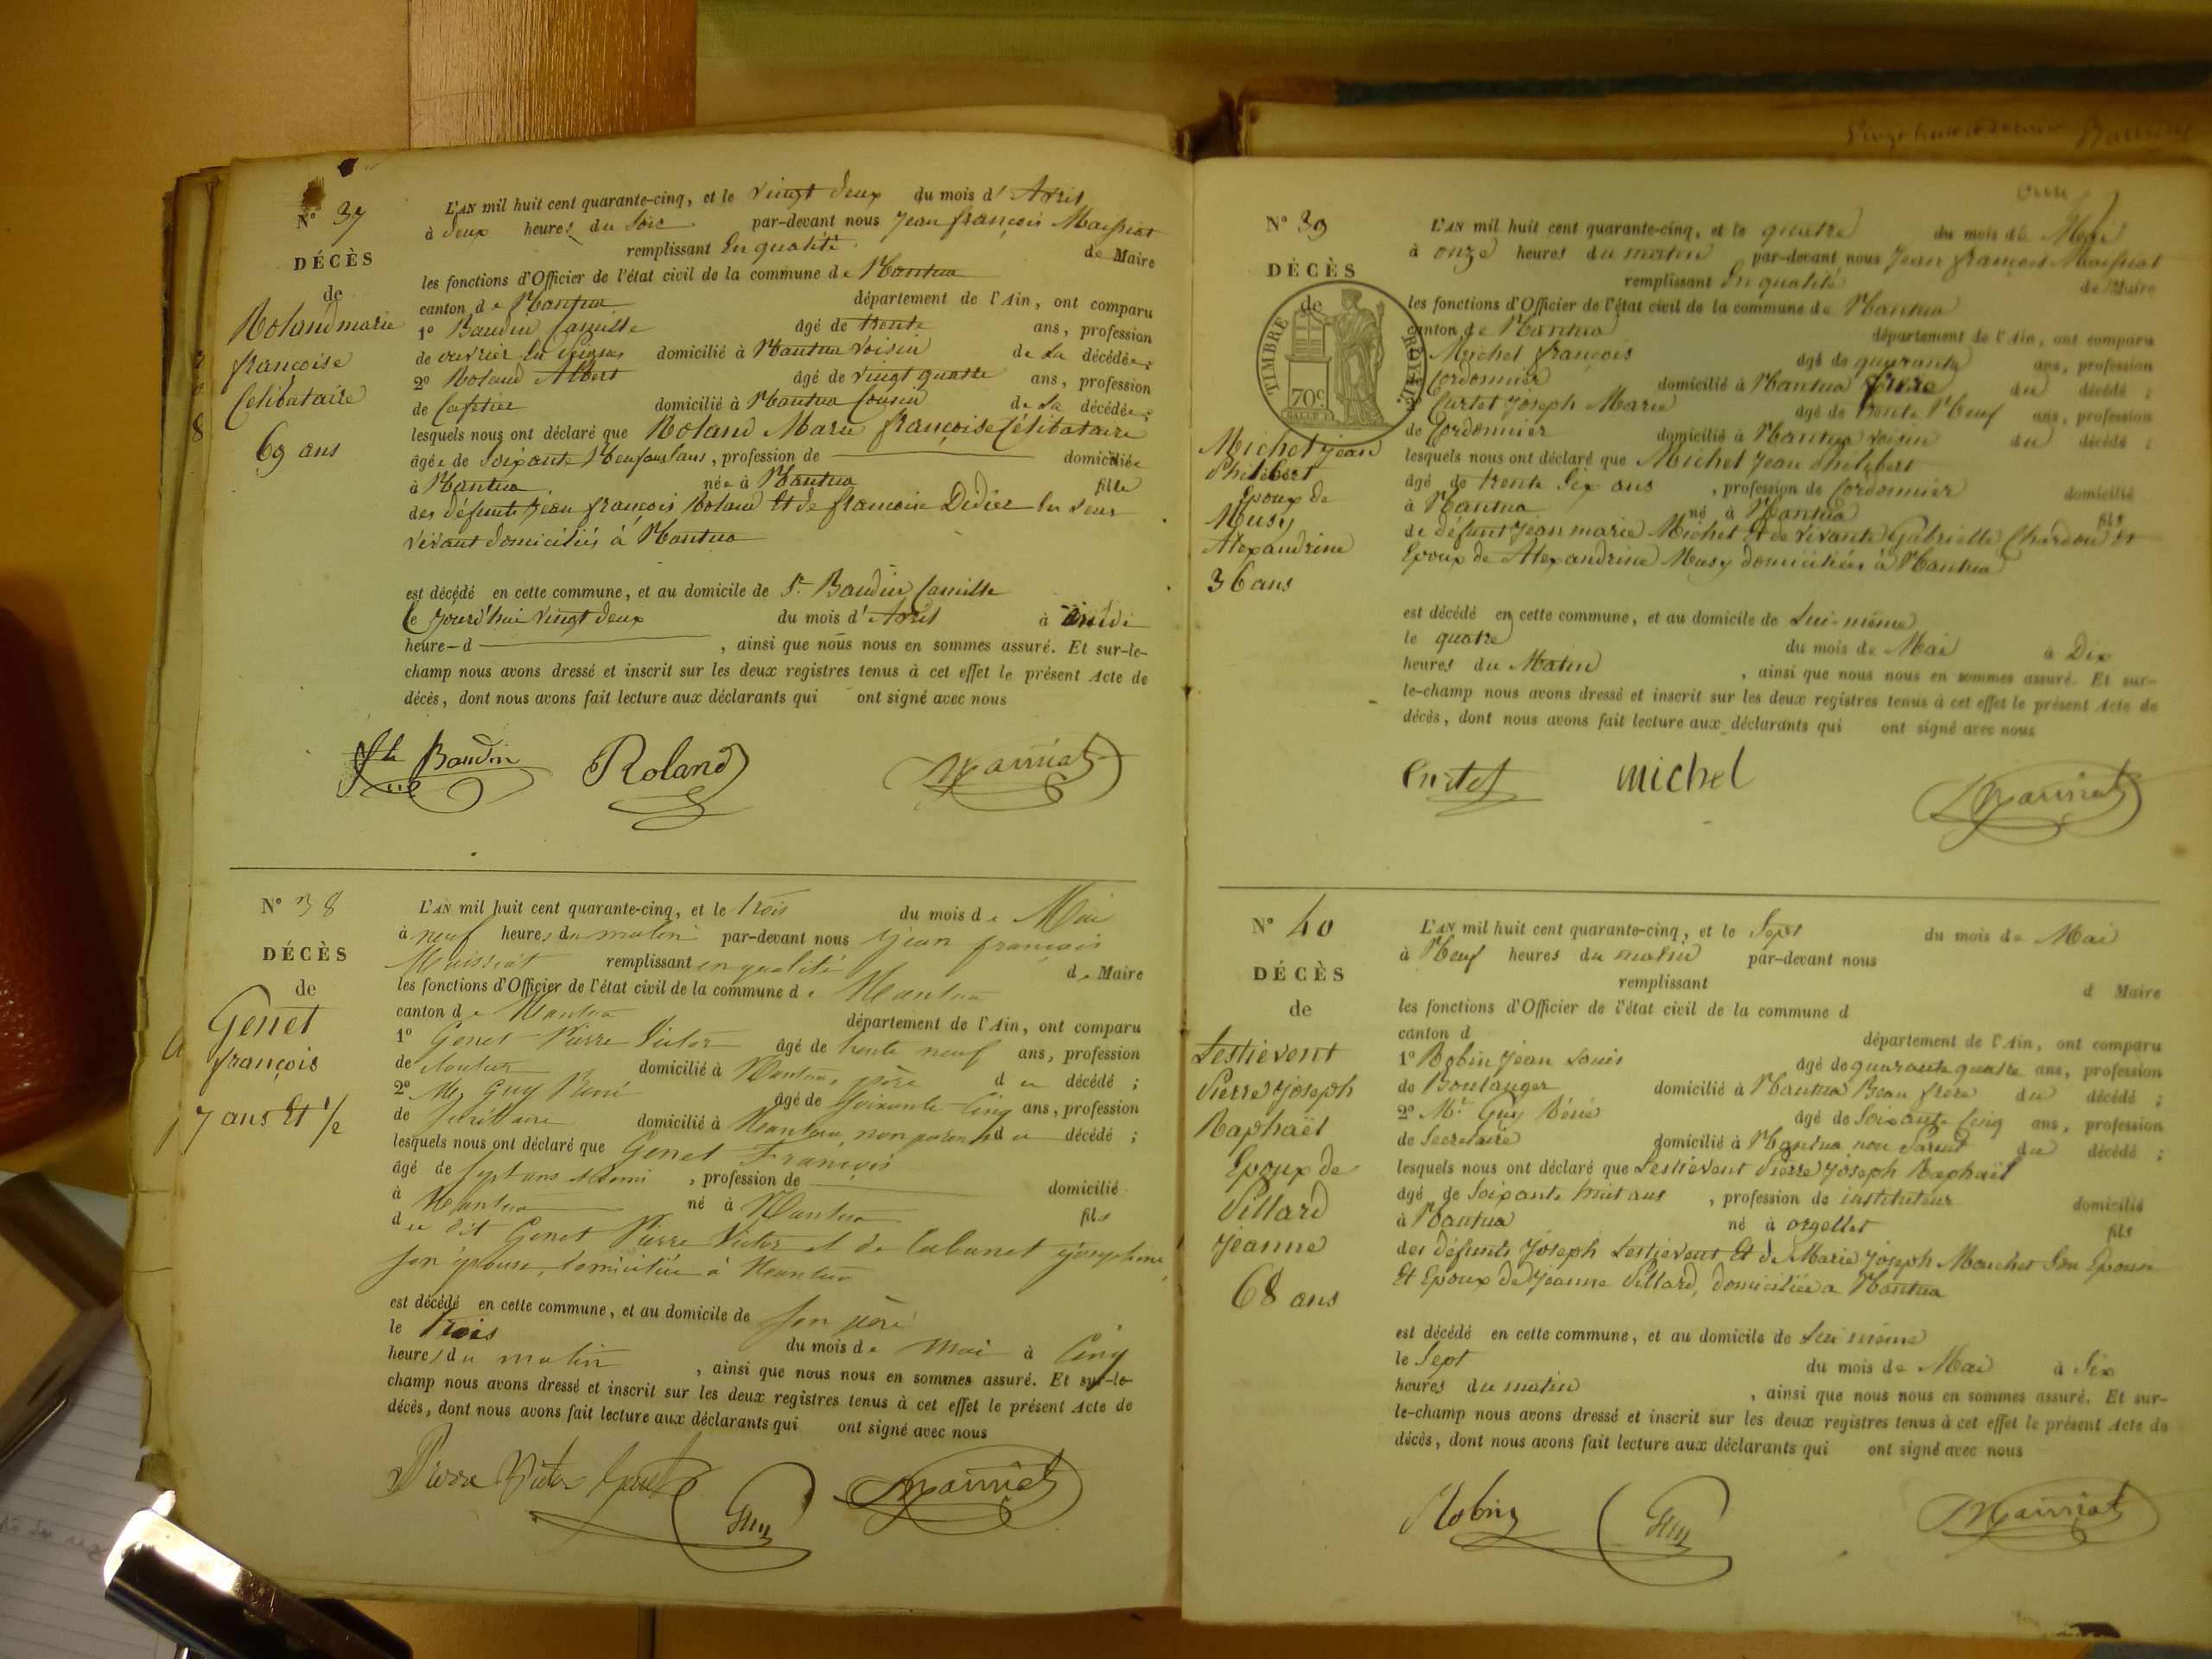 N° 37
DÉCÈS
de
Roland marie
françoise
Célibataire
69 ans
L'AN mil huit cent quarante-cinq, et le vingt deux du mois d'Avril
à deux heures du soir par-devant nous Jean françois Maissiat
remplissant En qualité de Maire
les fonctions d'Officier de l'état civil de la commune de Nantua
canton de Nantua département de l'Ain, ont comparu
1° Baudin Camille âgé de trente ans, profession
de ouvrier En Peignes domicilié à Nantua voisin de La décédée;
2° Roland Albert âgé de vingt quatre ans, profession
de Cafetier domicilié à Nantua Cousin de La décédée;
lesquels nous ont déclaré que Roland Marie françoise Célibataire
âgée de Soixante Neuf ans, profession de domiciliée
à Nantua née à Nantua fille
des défunts Jean françois Roland Et de francoise Didier En Leur
vivant domiciliés à Nantua
est décédé en cette commune, et au domicile de Sr Baudin Camille
le jourd'hui vingt deux du mois d'Avril à midi
heure d , ainsi que nous nous en sommes assuré. Et sur-le-
champ nous avons dressé et inscrit sur les deux registres tenus à cet effet le présent Acte de
décès, dont nous avons fait lecture aux déclarants qui ont signé avec nous
Baudin Roland Maissiat
N° 38
DÉCÈS
de
Genet
françois
7 ans Et 1/2
L'AN mil huit cent quarante-cinq, et le trois du mois de Mai
à neuf heures du matin par-devant nous jean françois
Maissiat remplissant en qualité de Maire
les fonctions d'Officier de l'état civil de la commune de Nantua
canton de Nantua département de l'Ain, ont comparu
1° Genet Pierre Victor âgé de trente neuf ans, profession
de domicilié à Nantua, père du décédé;
2° Mr Guy René âgé de soixante cinq ans, profession
de secrétaire domicilié à Nantua, non parent du décédé;
lesquels nous ont déclaré que Genet François
âgé de sept ans et demi, profession de domicilié
à Nantua né à Nantua fils
du dit Genet Pierre Victor et de Cabanet josephine
son épouse, domiciliée à Nantua
est décédé en cette commune, et au domicile de son père
le trois du mois de mai à cinq
heures du matin, ainsi que nous nous en sommes assuré. Et sur-le-
champ nous avons dressé et inscrit sur les deux registres tenus à cet effet le présent Acte de
décès, dont nous avons fait lecture aux déclarants qui ont signé avec nous
Pierre Victor Genet Guy Maissiat
N° 39
DÉCÈS
de
TIMBRE ROYAL
70c
Michel jean
Philibert
Epoux de
Musy
Alexandrine
36 ans
L'AN mil huit cent quarante-cinq, et le quatre du mois de Mai
à onze heures du matin par-devant nous Jean françois Maissiat
remplissant En qualité de Maire
les fonctions d'Officier de l'état civil de la commune de Nantua
canton de Nantua département de l'Ain, ont comparu
Michel françois âgé de quarante ans, profession
Cordonnier domicilié à Nantua frère du décédé;
Curtet Joseph Marie âgé de trente Neuf ans, profession
de Cordonnier domicilié à Nantua voisin du décédé;
lesquels nous ont déclaré que Michel Jean Philibert
âgé de trente Six ans, profession de Cordonnier domicilié
à Nantua né à Nantua fils
de défunt Jean marie Michel Et de vivante Gabrielle Chardon Et
Epoux de Alexandrine Musy domiciliées à Nantua
est décédé en cette commune, et au domicile de Lui-même
le quatre du mois de Mai à Dix
heures du Matin, ainsi que nous nous en sommes assuré. Et sur-
le-champ nous avons dressé et inscrit sur les deux registres tenus à cet effet le présent Acte de
décès, dont nous avons fait lecture aux déclarants qui ont signé avec nous
Curtet michel Maissiat
N° 40
DÉCÈS
de
Lestievent
Pierre Joseph
Raphaël
Epoux de
Pillard
Jeanne
68 ans
L'AN mil huit cent quarante-cinq, et le Sept du mois de Mai
à Neuf heures du matin par-devant nous
remplissant d Maire
les fonctions d'Officier de l'état civil de la commune d
canton d département de l'Ain, ont comparu
1° Robin Jean Louis âgé de quarante quatre ans, profession
de Boulanger domicilié à Nantua Beau frère du décédé;
2° Mr Guy Réné âgé de Soixante Cinq ans, profession
de Secretaire domicilié à Nantua non Parent du décédé;
lesquels nous ont déclaré que Lestiévent Pierre Joseph Raphaël
âgé de Soixante huit ans, profession de instituteur domicilié
à Nantua né à orgellet fils
des défunts Joseph Lestievent Et de Marie Joseph Mouchet Son Epouse
Et Epoux de Jeanne Pillard, domiciliée a Nantua
est décédé en cette commune, et au domicile de Lui même
le Sept du mois de Mai à Six
heures du matin, ainsi que nous nous en sommes assuré. Et sur-
le-champ nous avons dressé et inscrit sur les deux registres tenus à cet effet le présent Acte de
décès, dont nous avons fait lecture aux déclarants qui ont signé avec nous
Robin Guy Maissiat